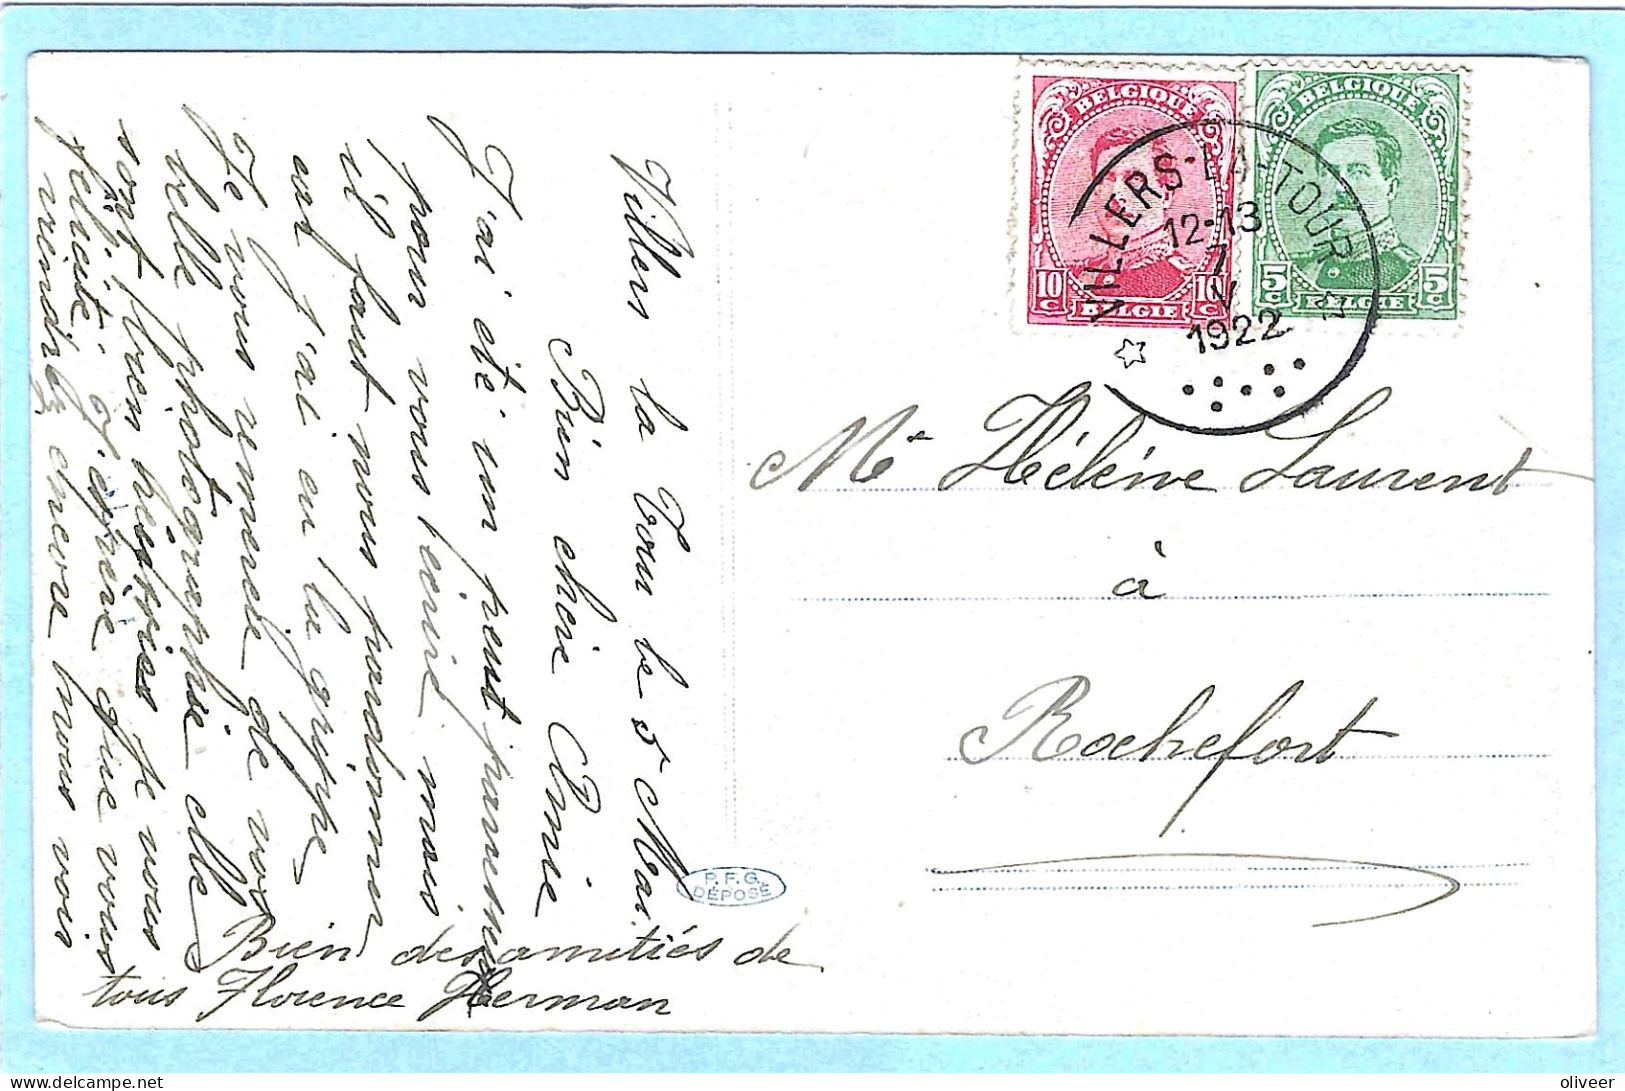 Villers la Tour le 5 Mai
Bien chère Amie
J'ai été un peut paresseuse
pour vous écrire mais
il faut nous pardonner
car j'ai eu la grippe
Je vous remercie de votre
belle photographie elle
sont bien Je vous
félicite j'espère que vous
viendré encore nous voir
Bien des amitiés de
tous Florence Herman
P.F.G.
DÉPOSÉ
BELGIQUE
10 C 10 C
BELGIE
BELGIQUE
5 C 5 C
BELGIE
VILLERS-LA-TOUR
12-13
7
V
1922
Mlle Hélène Laurent
à
Rochefort
oliveer